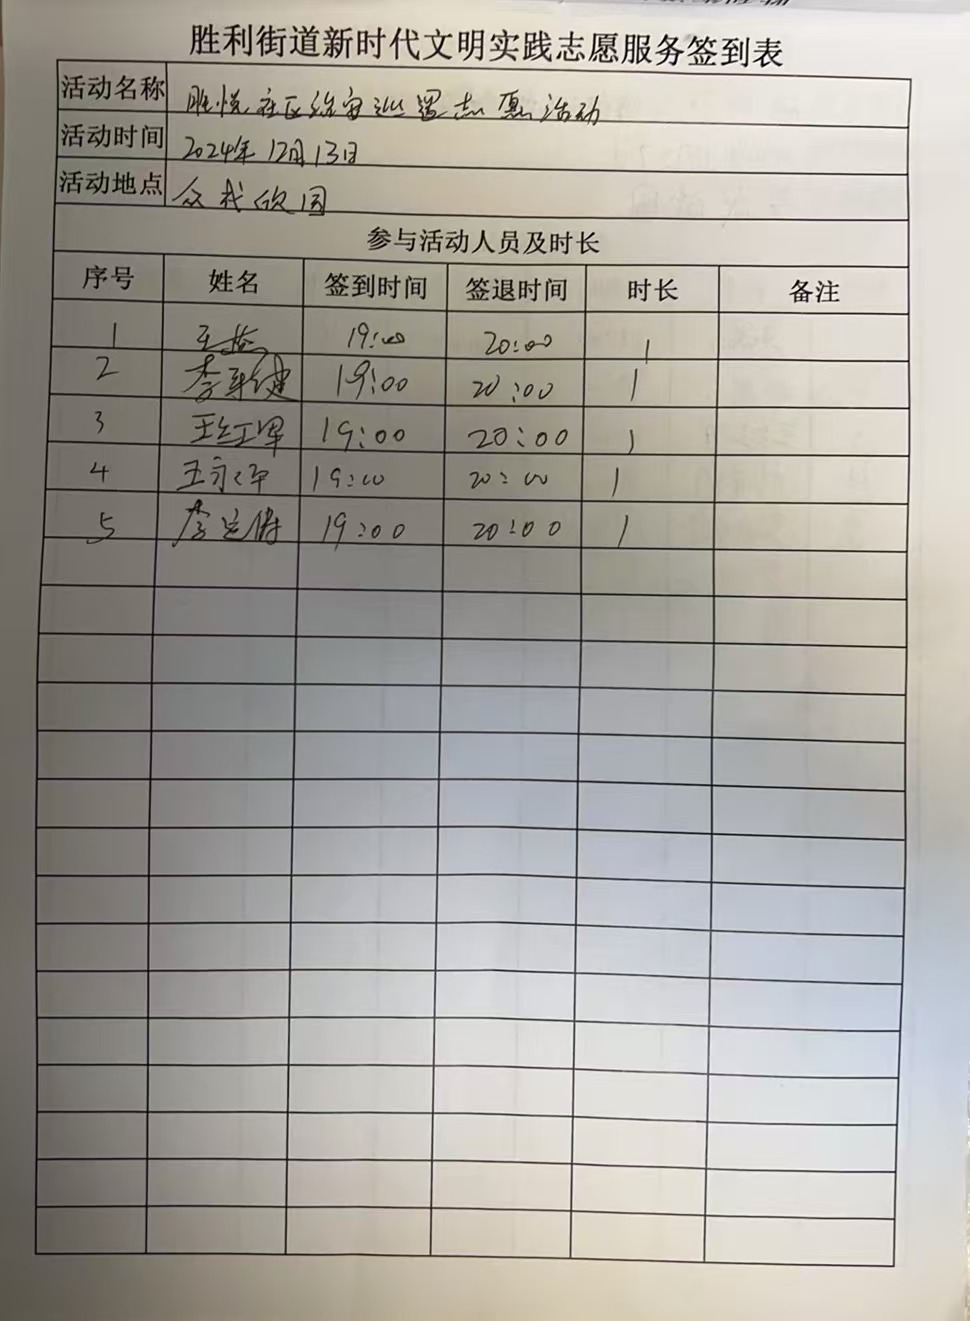 胜利街道新时代文明实践志愿服务签到表
活动名称 胜悦社区治安巡逻志愿活动
活动时间 2024年12月13日
活动地点 众成欣园
参与活动人员及时长
序号 姓名 签到时间 签退时间 时长 备注
1 19:00 20:00 1
2 19:00 20:00 1
3 王红军 19:00 20:00 1
4 王永军 19:00 20:00 1
5 19:00 20:00 1